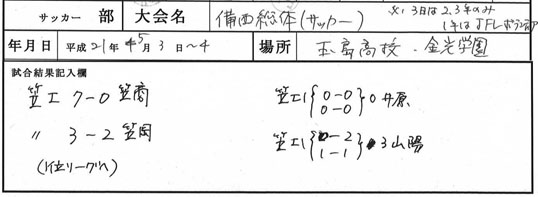 サッカー 部 大会名 備西総体(サッカー) ※1 3日は2.3年のみ
1年はJFLボランティア
年月日 平成21年 5月 3日~4 場所 玉島高校・金光学園
試合結果記入欄
笠工 7-0 笠商
〃 3-2 笠岡
(1位リーグへ)
笠工1{0-0 0-0}0井原
笠工1{0-2 1-1}3山陽